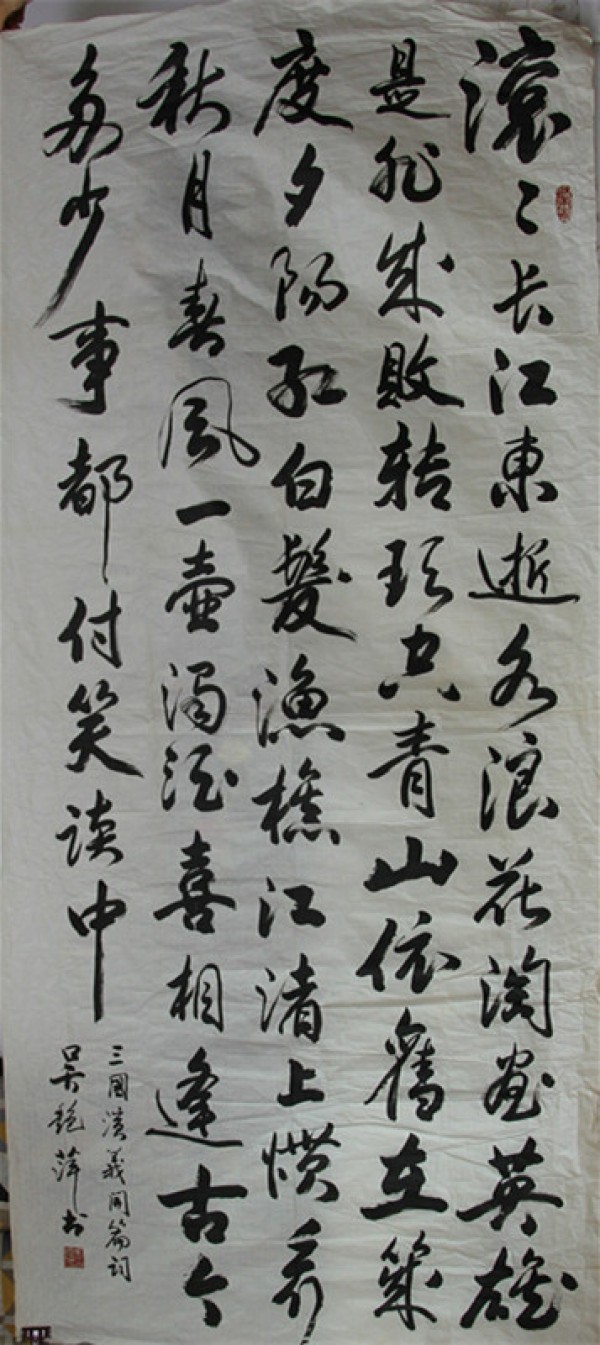 滚〻长江東逝水浪花淘尽英雄
是非成敗转头空青山依舊在幾
度夕陽红白髮漁樵江渚上惯看
秋月春風一壶濁酒喜相逢古今
多少事都付笑谈中
三國演義開篇词
吴艳萍书